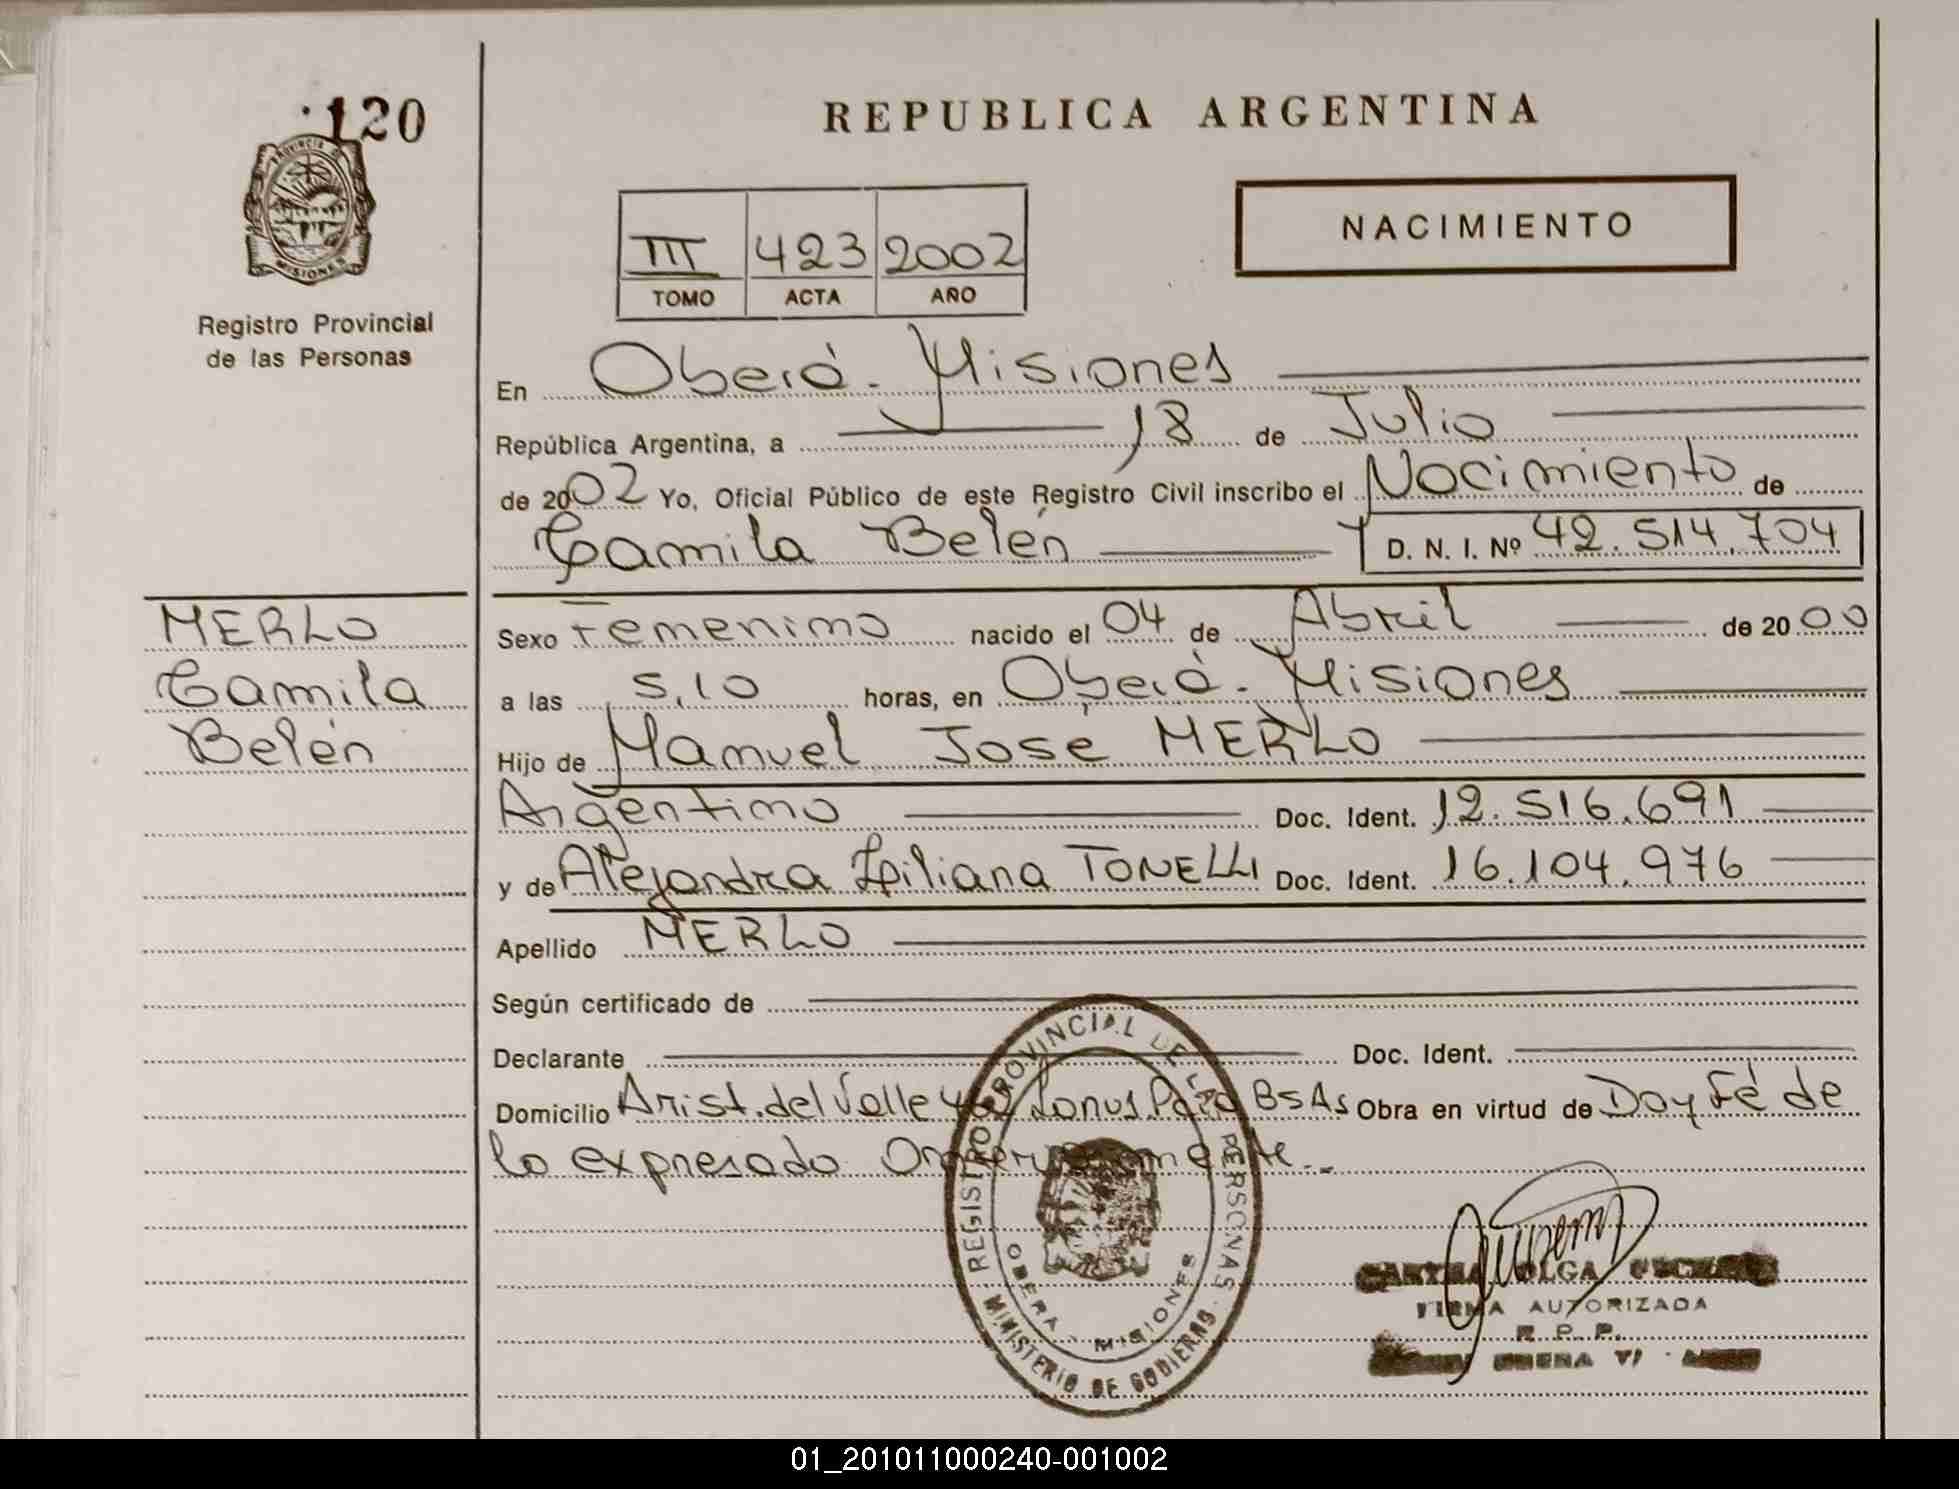 120
PROVINCIA DE
MISIONES
Registro Provincial
de las Personas
REPUBLICA ARGENTINA
III 423 2002
TOMO ACTA AÑO
NACIMIENTO
En Oberá - Misiones
República Argentina, a 18 de Julio
de 2002 Yo, Oficial Público de este Registro Civil inscribo el Nacimiento de
Camila Belén D. N. I. Nº 42.514.704
MERLO
Camila
Belén
Sexo Femenino nacido el 04 de Abril de 2000
a las 5,10 horas, en Oberá - Misiones
Hijo de Manuel José MERLO
Argentino Doc. Ident. 12.516.691
y de Alejandra Liliana TONELLI Doc. Ident. 16.104.976
Apellido MERLO
Según certificado de
Declarante Doc. Ident.
Domicilio Arist. del Valle Lanus BsAs Obra en virtud de Doy Fé de
lo expresado
REGISTRO PROVINCIAL DE LAS PERSONAS
MINISTERIO DE GOBIERNO
OBERA - MISIONES
OLGA
FIRMA AUTORIZADA
R. P. P.
01_201011000240-001002